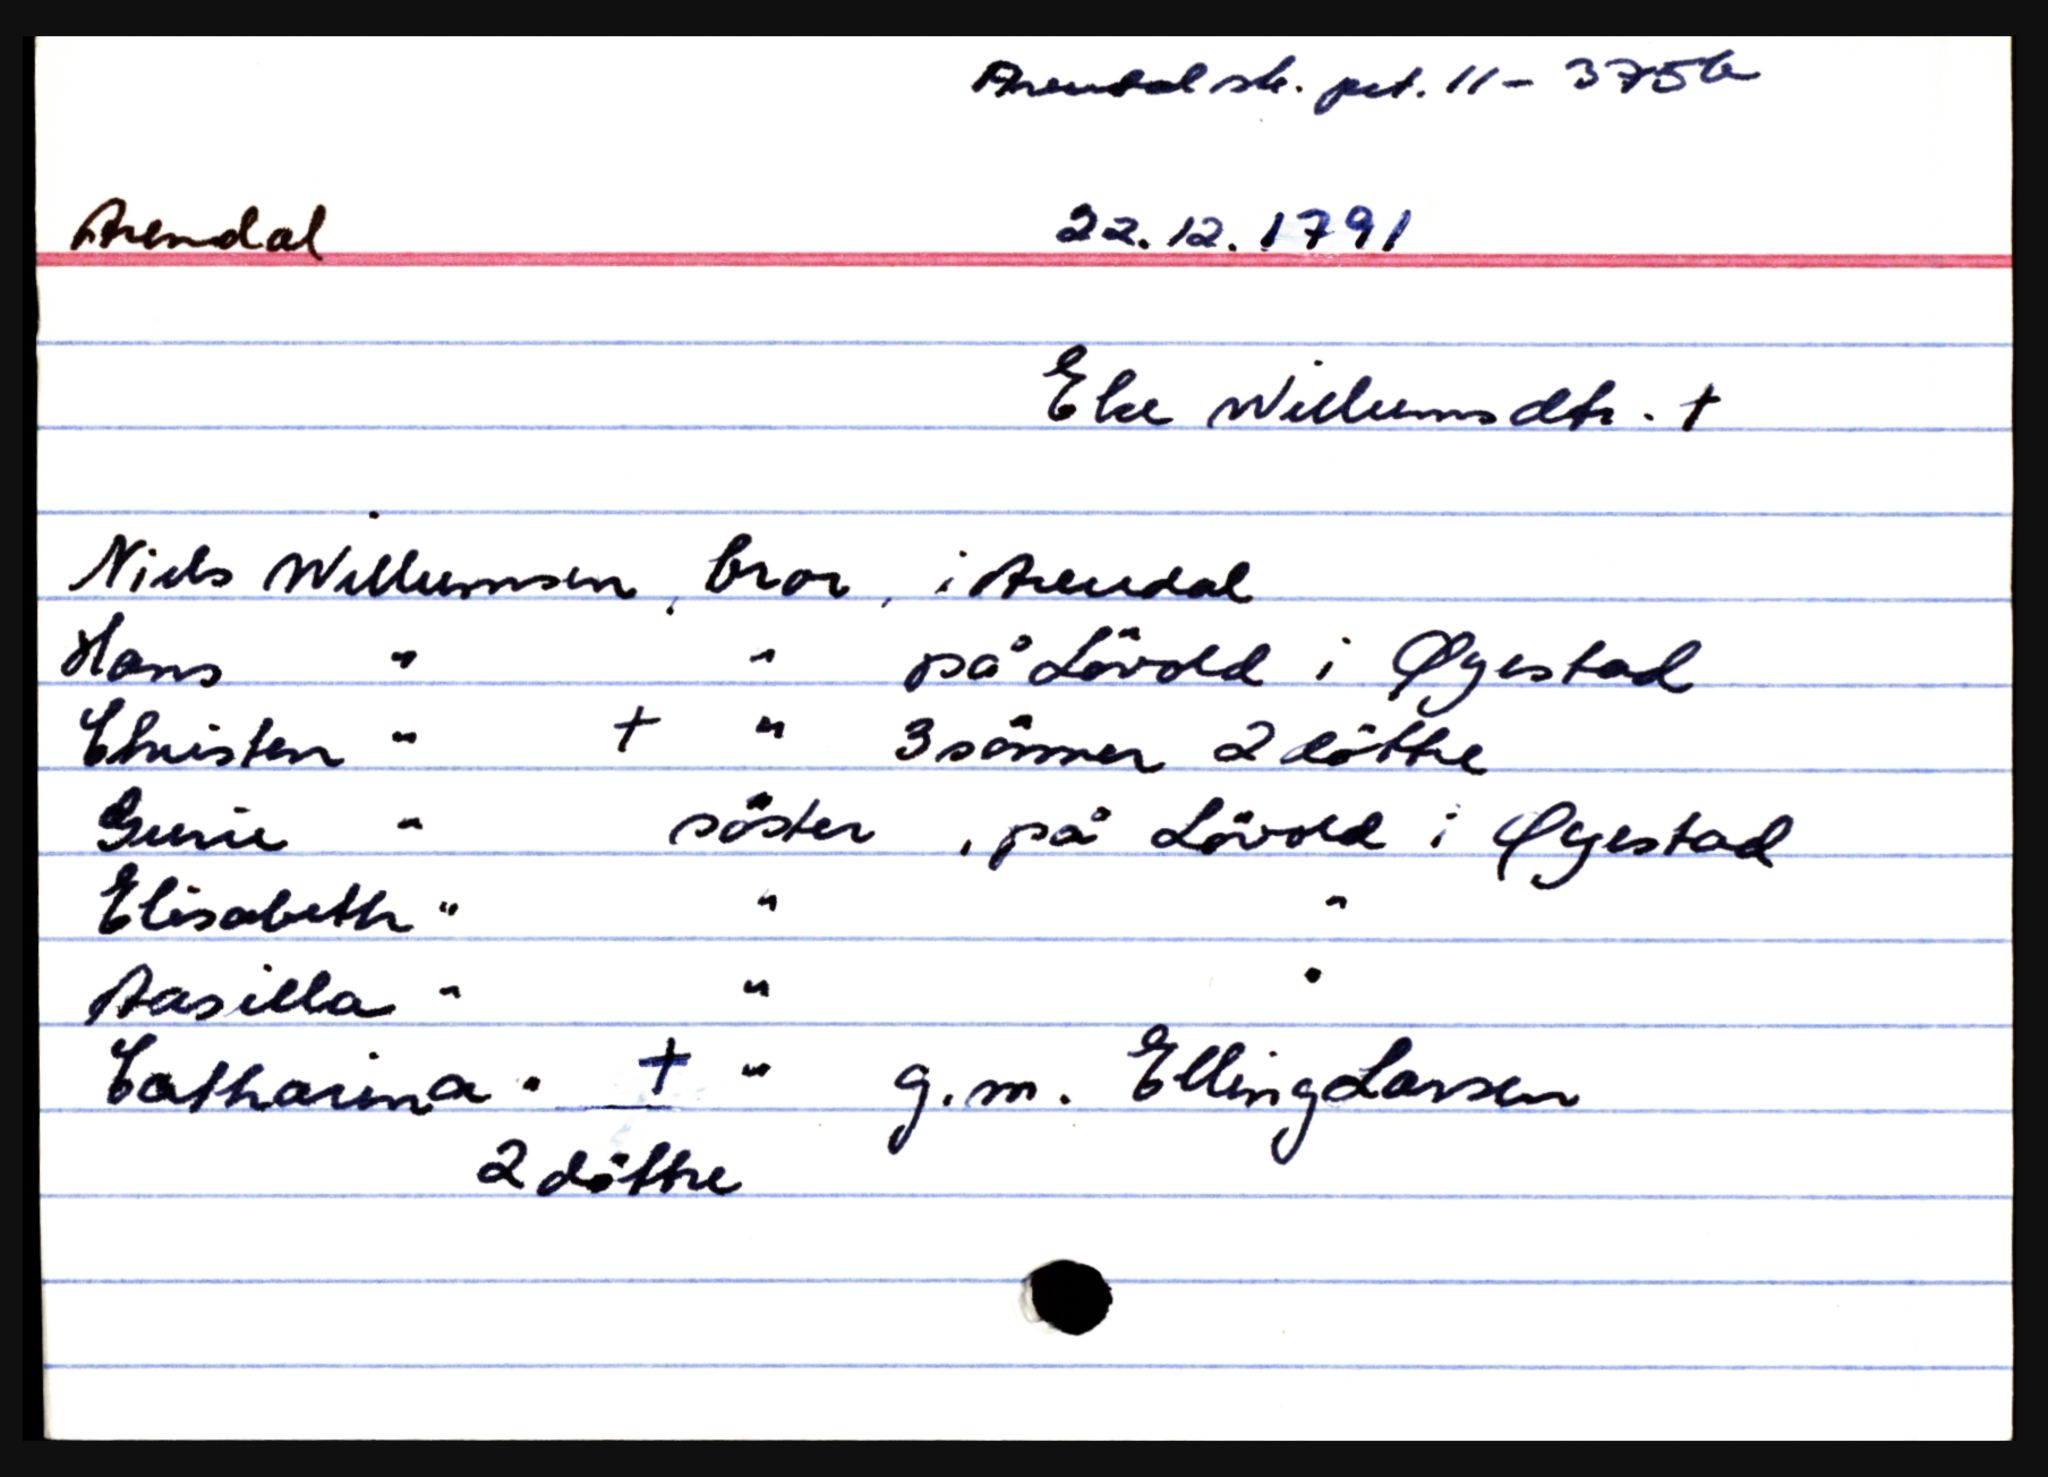 Arendal sk. prt. 11 - 375b
Arendal 22.12.1791
Else Willumsdtr. †
Niels Willumsen, bror, i Arendal
Hans " " på Lövold i Øyestad
Christen " † " 3 sönner 2 döttre
Gurie " söster, på Lövold i Øyestad
Elisabeth " " "
Aasilla " " "
Catharina " † " g.m. Elling Larsen
2 döttre